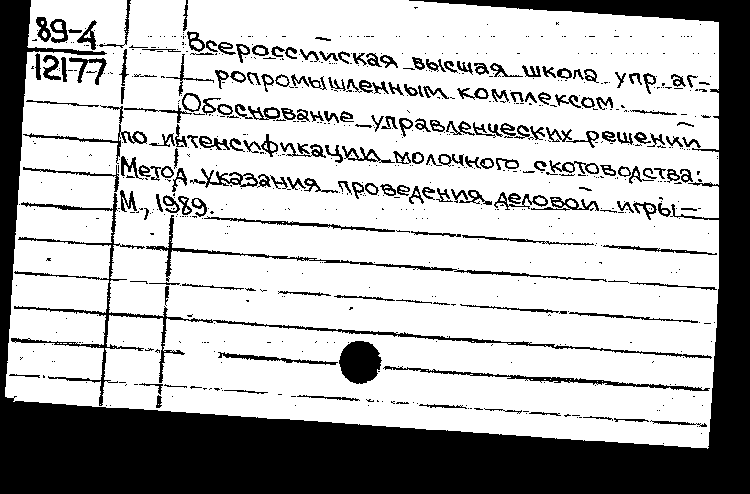 89-4
12177
Всероссийская высшая школа упр. аг-
ропромышленным комплексом.
Обоснование управленческих решений
по интенсификации молочного скотоводства:
Метод. указания проведения деловой игры-
М., 1989.